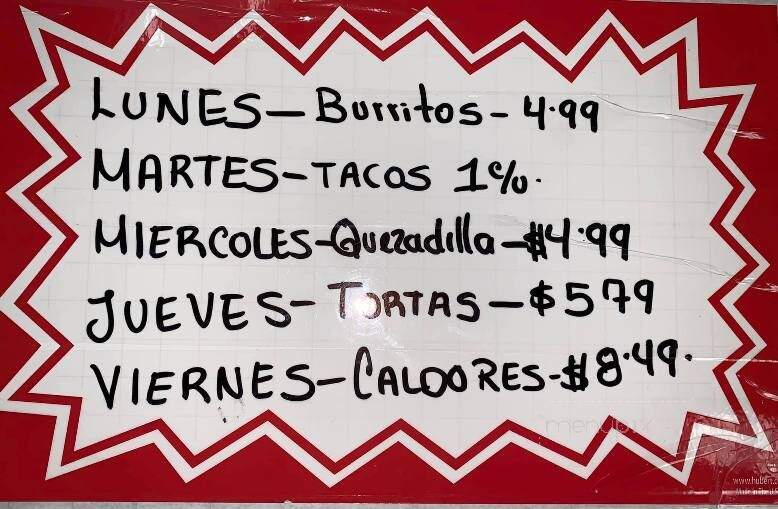 LUNES-Burritos-4.99
MARTES-TACOS 1%.
MIERCOLES-Quezadilla-$4.99
JUEVES-TORTAS-$5 79
VIERNES-CALDO RES-$8.49.
menupix
www.hubert.c
Made in The U.S